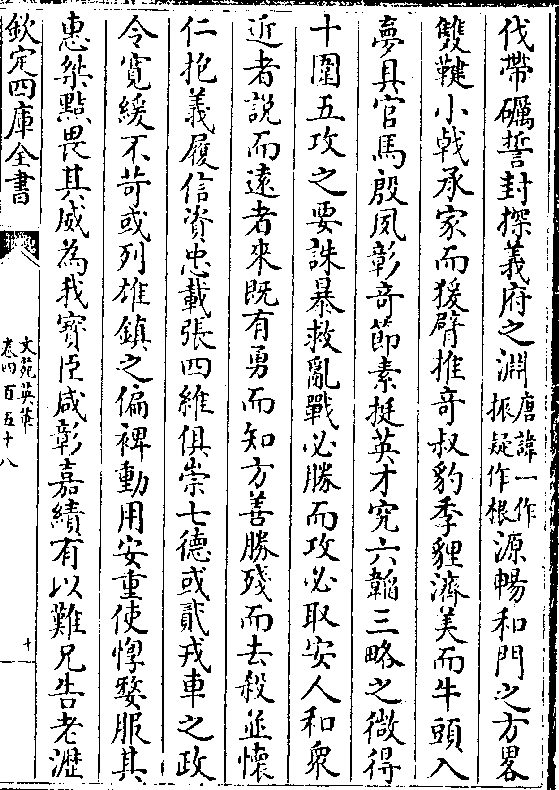 伐帶礪誓封探義府之淵唐諱一作振疑作根源暢和門之方畧
雙鞬小戟承家而猨臂推奇叔豹季貍濟美而牛頭入
夢具官馬殷夙彰奇節素挺英才究六韜三略之微得
十圍五攻之要誅暴救亂戰必勝而攻必取安人和衆
近者說而遠者來既有勇而知方善勝殘而去殺並懷
仁抱義履信資忠載張四維俱崇七德或貳戎車之政
令寛緩不苛或列雄鎮之偏裨動用安重使惸嫠服其
惠桀黠畏其威為我寳臣咸彰嘉績有以難兄告老瀝
欽定四庫全書
文苑英華
卷四百五十八
十